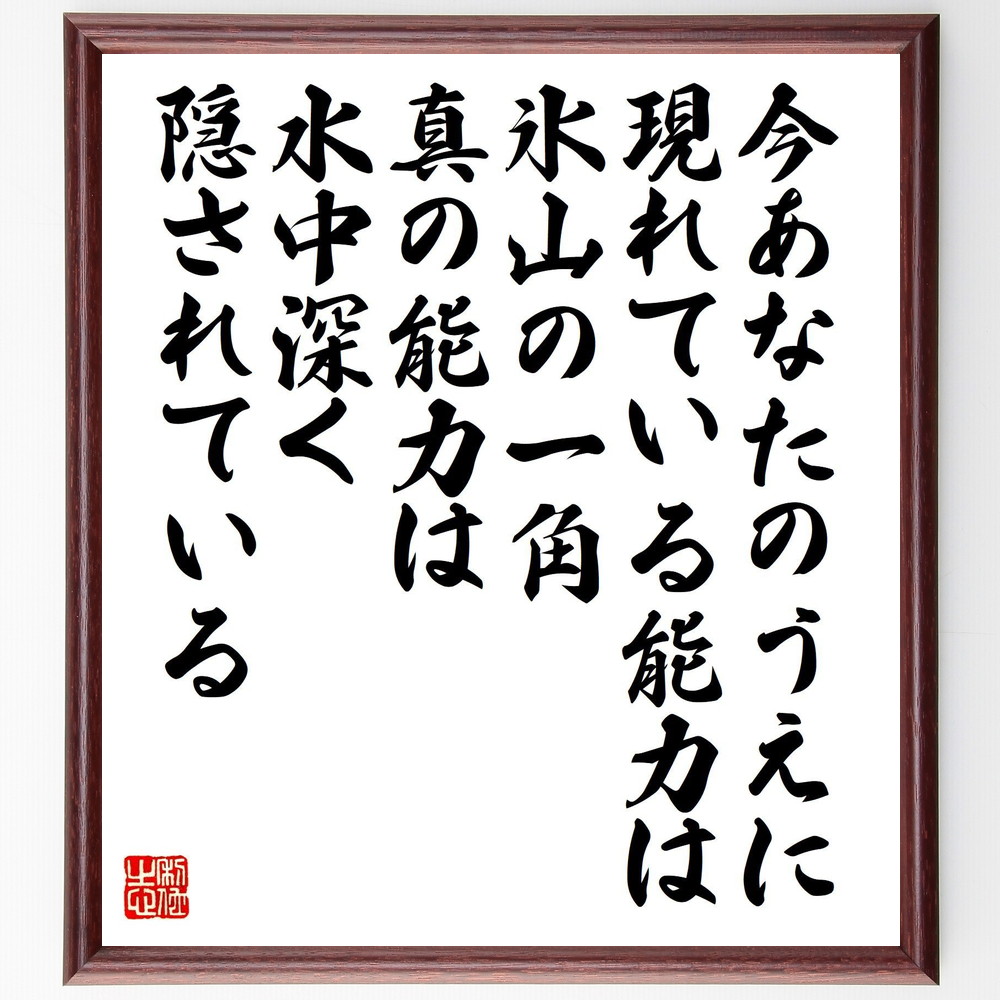 今あなたのうえに
現れている能力は
氷山の一角
真の能力は
水中深く
隠されている